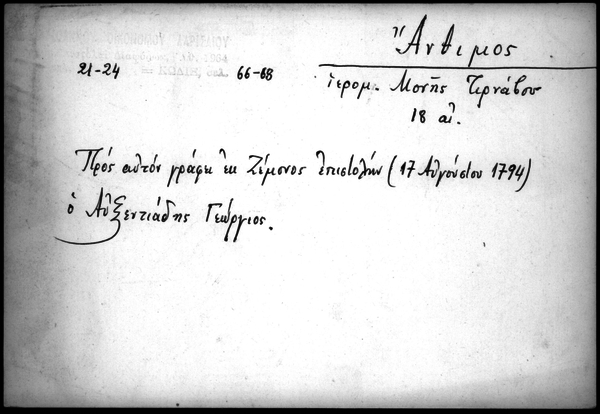 Ἄνθιμος
21-24 66-68
ἱερομ. Μονῆς Τιρνάβου
18 αἰ.
Πρός αὐτόν γράφει ἐκ Ζέμονος ἐπιστολήν (17 Αὐγούστου 1794)
ὁ Αὐξεντιάδης Γεώργιος.